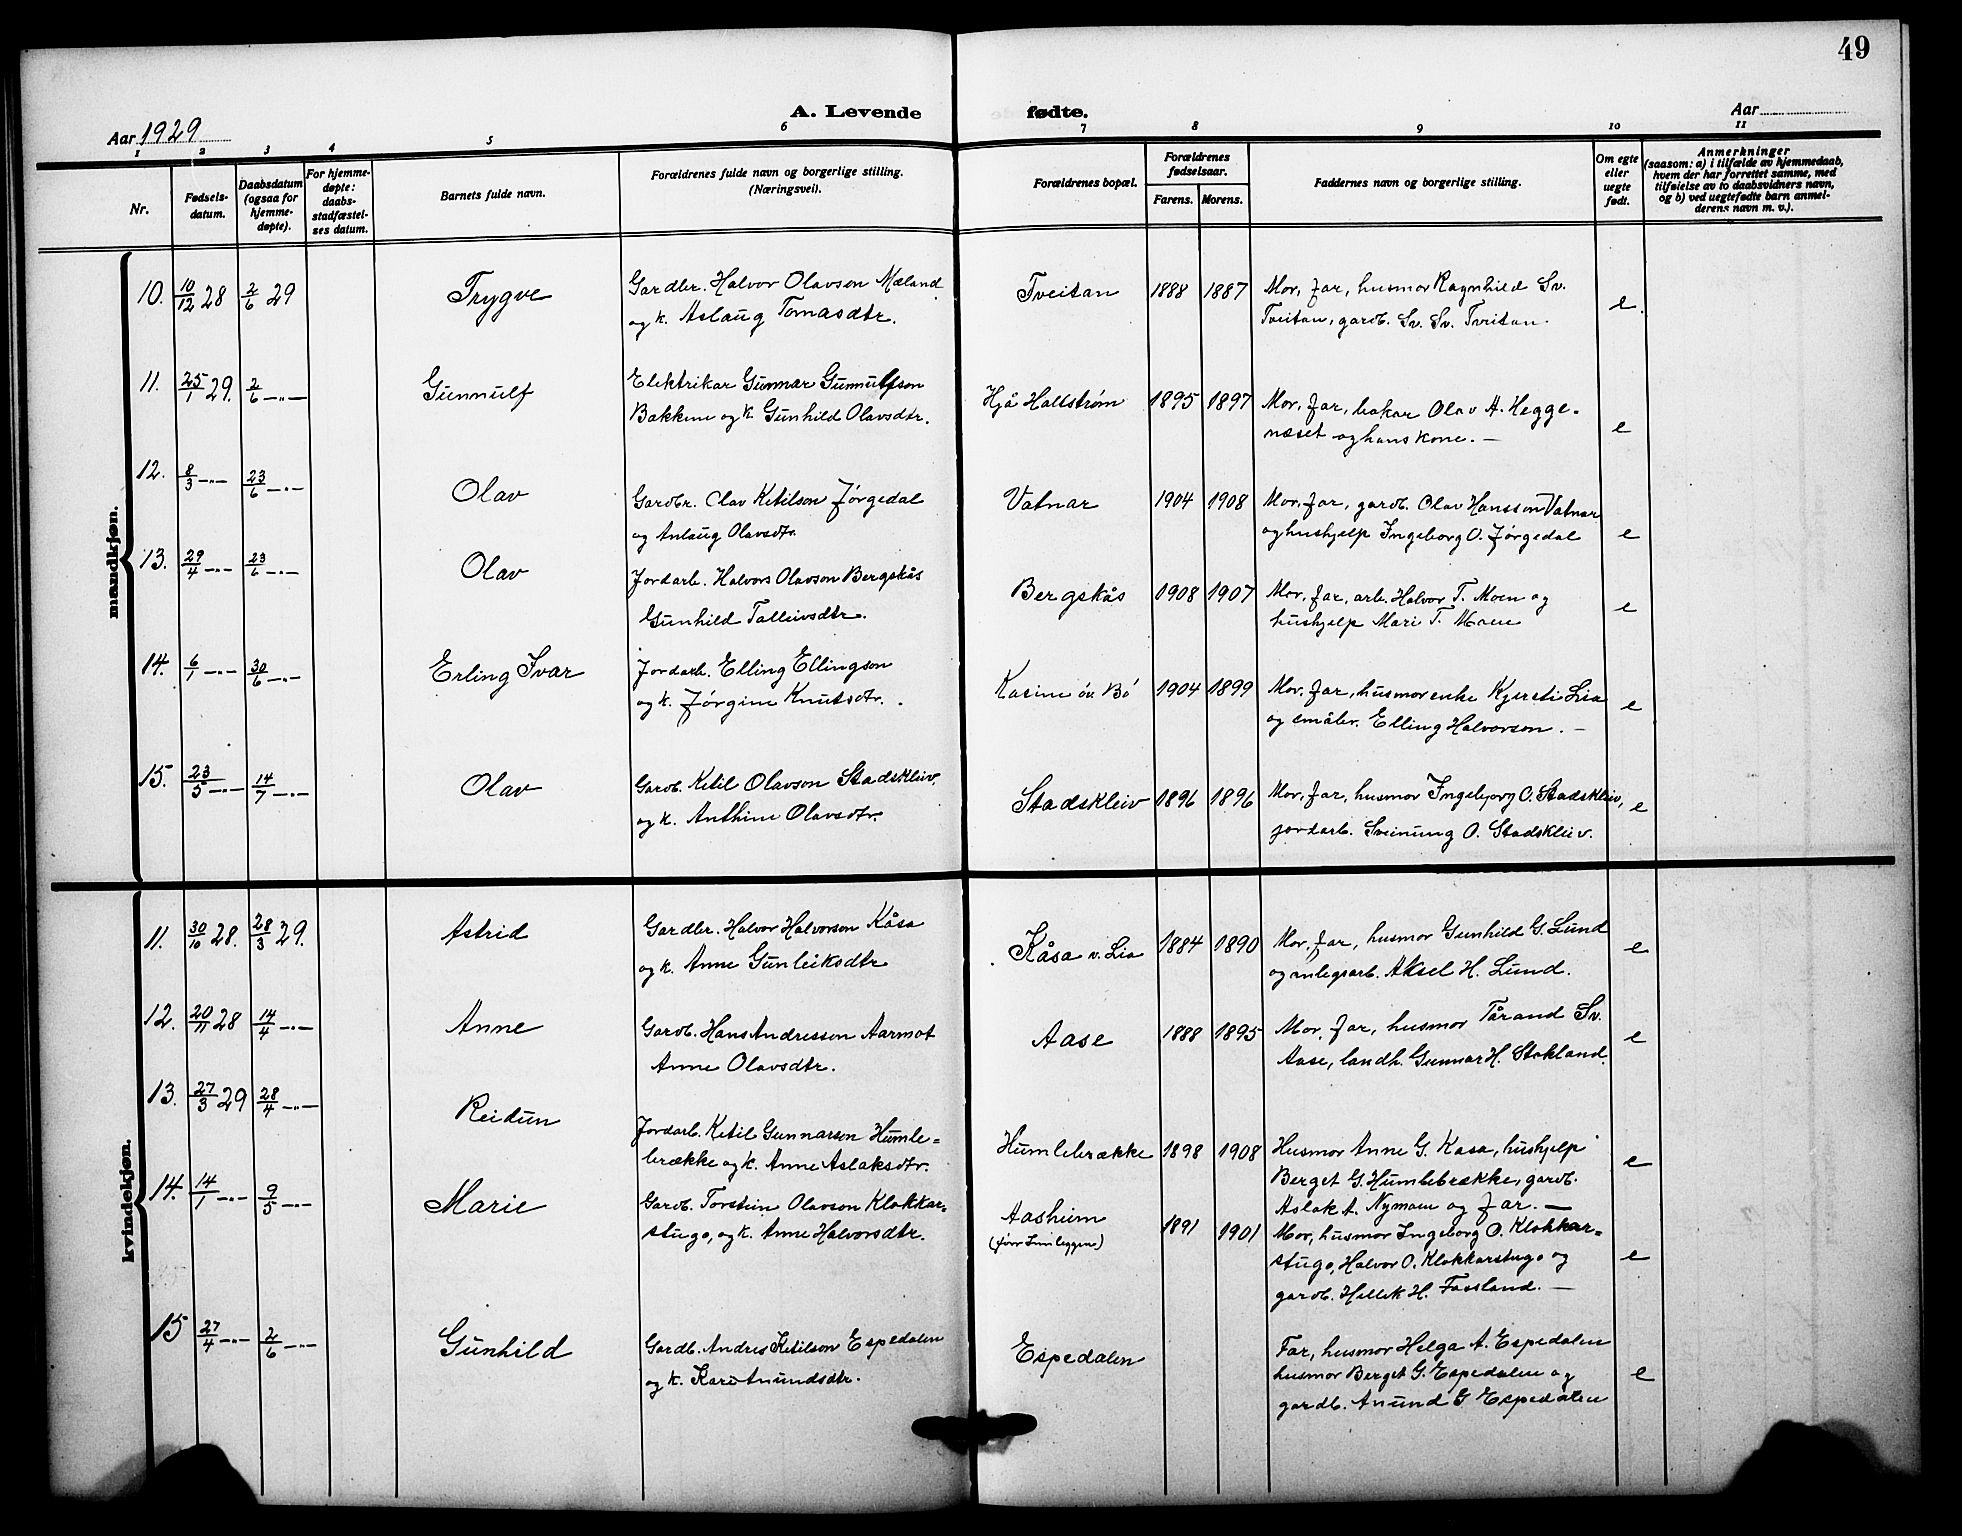 49
A. Levende fødte.
Aar 1929
Aar
1 2 3 4 5 6 7 8 9 10 11
Nr.
Fødsels-
datum.
Daabsdatum
(ogsaa for
hjemme-
døpte).
For hjemme-
døpte:
daabs-
stadfæstel-
ses datum.
Barnets fulde navn.
Forældrenes fulde navn og borgerlige stilling.
(Næringsvei).
Forældrenes bopæl.
Forældrenes
fødselsaar.
Farens. Morens.
Faddernes navn og borgerlige stilling.
Om egte
eller
uegte
født.
Anmerkninger
(saasom: a) i tilfælde av hjemmedaab,
hvem der har forrettet samme, med
tilføielse av to daabsvidners navn,
og b) ved uegtefødte barn anmel-
derens navn m. v.).
mandkjøn.
10. 10/12 28 2/6 29 Trygve
Gardbr. Halvor Olavson Mæland
og k. Aslaug Tomasdtr.
Tveitan 1888 1887
Mor, far, husmor Ragnhild Sv.
Tveitan, gardb. Sv. Sv. Tveitan.
e.
11. 25/1 29. 2/6 —„— Gunnulf
Elektrikar Gunnar Gunnulfson
Bakkene og k. Gunhild Olavsdtr.
Hjå Hallstrøm 1895 1897
Mor, far, bakar Olav H. Hegge-
næset og hans kone. —
e
12. 8/3 —„— 23/6 —„— Olav
Gardbr. Olav Ketilson Jørgedal
og Anlaug Olavsdtr.
Vatnar 1904 1908
Mor, far, gardb. Olav Hansson Vatnar
og hushjelp Ingeborg O. Jørgedal
e
13. 29/4 —„— 23/6 —„— Olav
Jordarb. Halvors Olavson Bergskås
Gunhild Talleivsdtr.
Bergskås 1908 1907
Mor, far, arb. Halvor T. Moen og
hushjelp Mari T. Moen
e
14. 6/1 —„— 30/6 —„— Erling Ivar
Jordarb. Elling Ellingson
og k. Jørgine Knutsdtr.
Kasine öv. Bö 1904 1899
Mor, far, husmorenke Kjersti Lia
og småbr. Elling Halvorson. —
e
15. 23/5 —„— 14/7 —„— Olav
Gardb. Ketil Olavson Stadskleiv,
og k. Anthine Olavsdtr.
Stadskleiv 1896 1896
Mor, far, husmor Ingebjorg O. Stadskleiv,
jordarb. Sveinung O. Stadskleiv.
e
kvindekjøn.
11. 30/10 28. 28/3 29. Astrid
Gardbr. Halvor Halvorson Kåsa
og k. Anne Gunleiksdtr
Kåsa v. Lia 1884 1890
Mor, far, husmor Gunhild G. Lund
og anlegsarb. Aksel H. Lund.
e
12. 20/11 28 14/4 —„— Anne
Gardb. Hans Andresson Aarmot
Anne Olavsdtr.
Aase 1888 1895
Mor, far, husmor Tårand Sv.
Aase, landh. Gunnar H. Stokland.
e
13. 27/3 29 28/4 —„— Reidun
Jordarb. Ketil Gunnarson Humle-
brække og k. Anne Aslaksdtr.
Humlebrække 1898 1908
Husmor Anne G. Kasa, hushjelp
Berget G. Humlebrække, gardb.
Aslak A. Nymoen og far. —
e
14. 14/1 —„— 9/5 —„— Marie
Gardb. Torstein Olavson Klokkar-
stugo, og k. Anne Halvorsdtr.
Aasheim 1891 1901
Mor, husmor Ingeborg O. Klokkar-
stugo, Halvor O. Klokkarstugo og
gardb. Hellek H. Fossland. —
e
15 27/4 —„— 2/6 —„— Gunhild
Gardb. Andres Ketilson Espedalen
og k. Kari Anundsdtr.
Espedalen
Far, husmor Helga A. Espedalen
husmor Berget G. Espedalen og
gardb. Anund G Espedalen
e